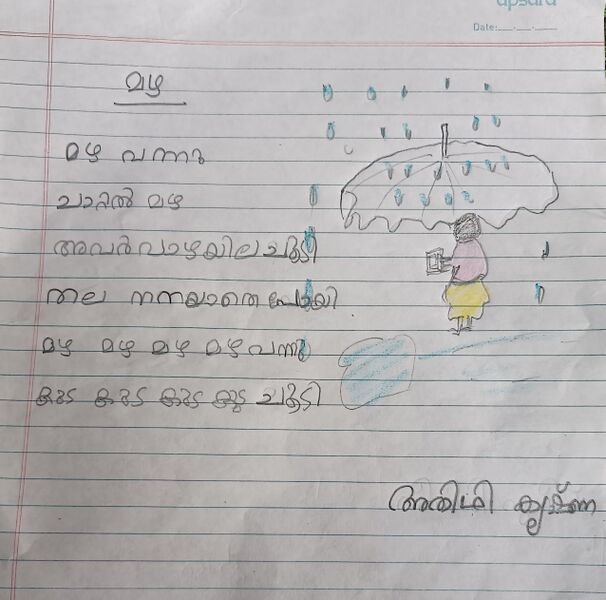 apsara
Date:
മഴ
മഴ വന്നു
ചാറ്റൽ മഴ
അവർ വാഴയില ചൂടി
തല നനയാതെ പോയി
മഴ മഴ മഴ മഴ വന്നു
കുട കുട കുട കുട ചൂടി
അതിഥി കൃഷ്ണ